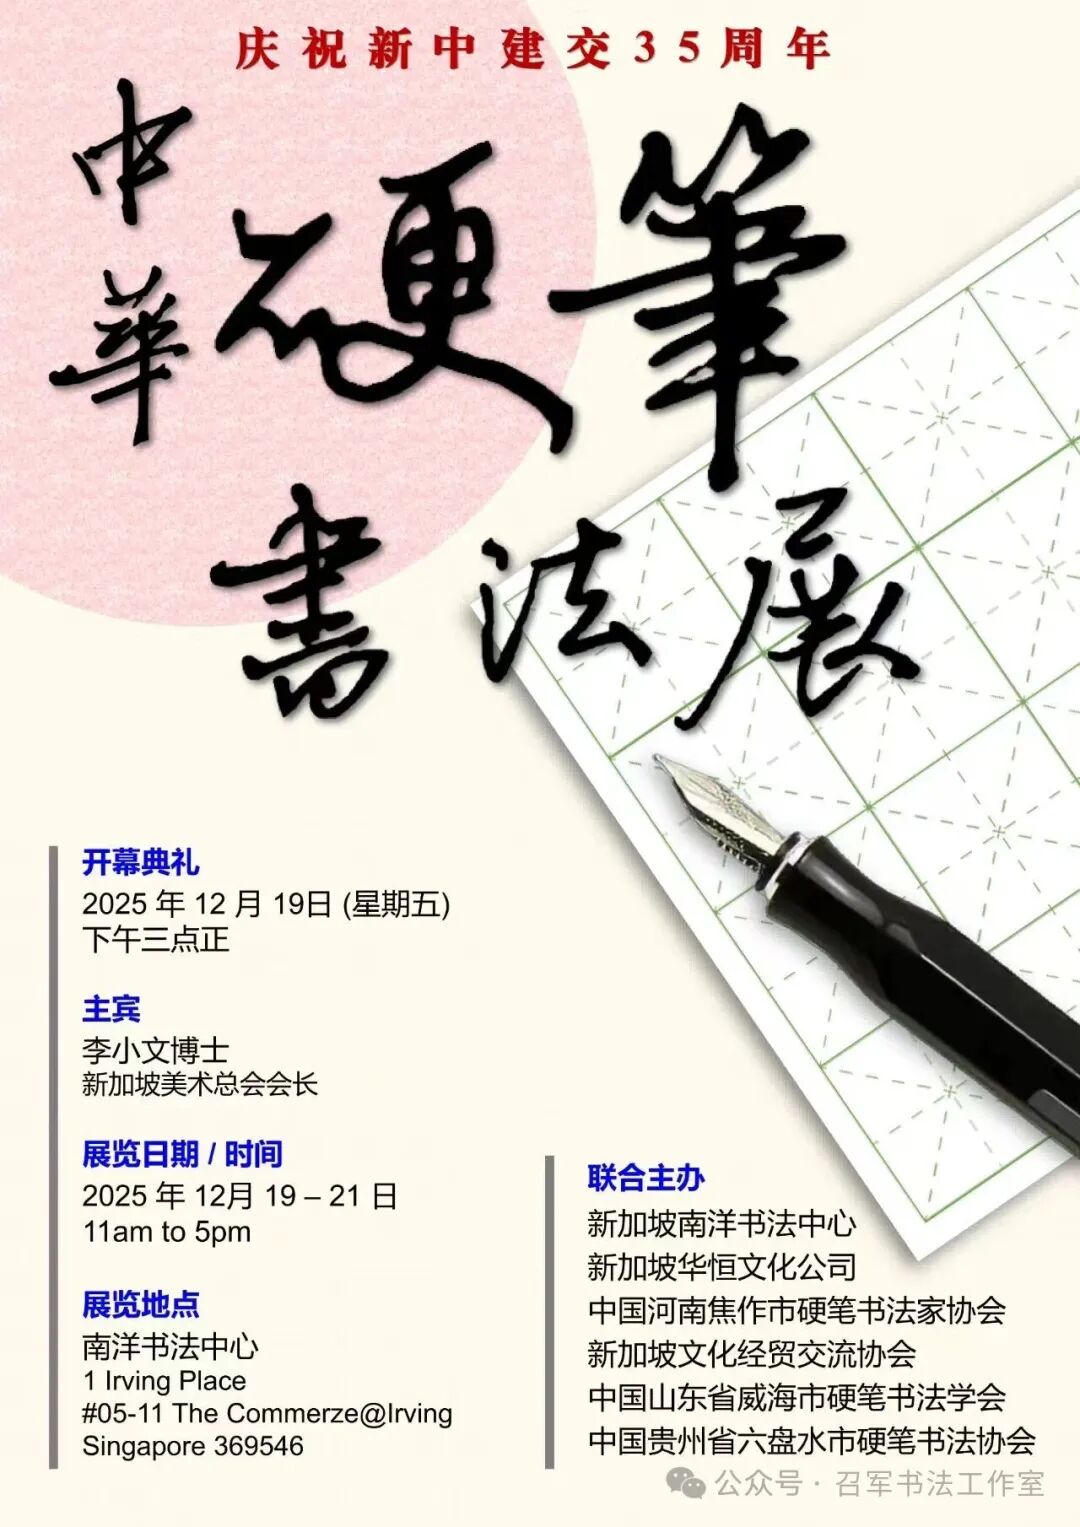 庆祝新中建交35周年
中華
硬筆
書法展
开幕典礼
2025 年 12 月 19日 (星期五)
下午三点正
主宾
李小文博士
新加坡美术总会会长
展览日期 / 时间
2025 年 12月 19 – 21 日
11am to 5pm
展览地点
南洋书法中心
1 Irving Place
#05-11 The Commerze@Irving
Singapore 369546
联合主办
新加坡南洋书法中心
新加坡华恒文化公司
中国河南焦作市硬笔书法家协会
新加坡文化经贸交流协会
中国山东省威海市硬笔书法学会
中国贵州省六盘水市硬笔书法协会
公众号 · 召军书法工作室